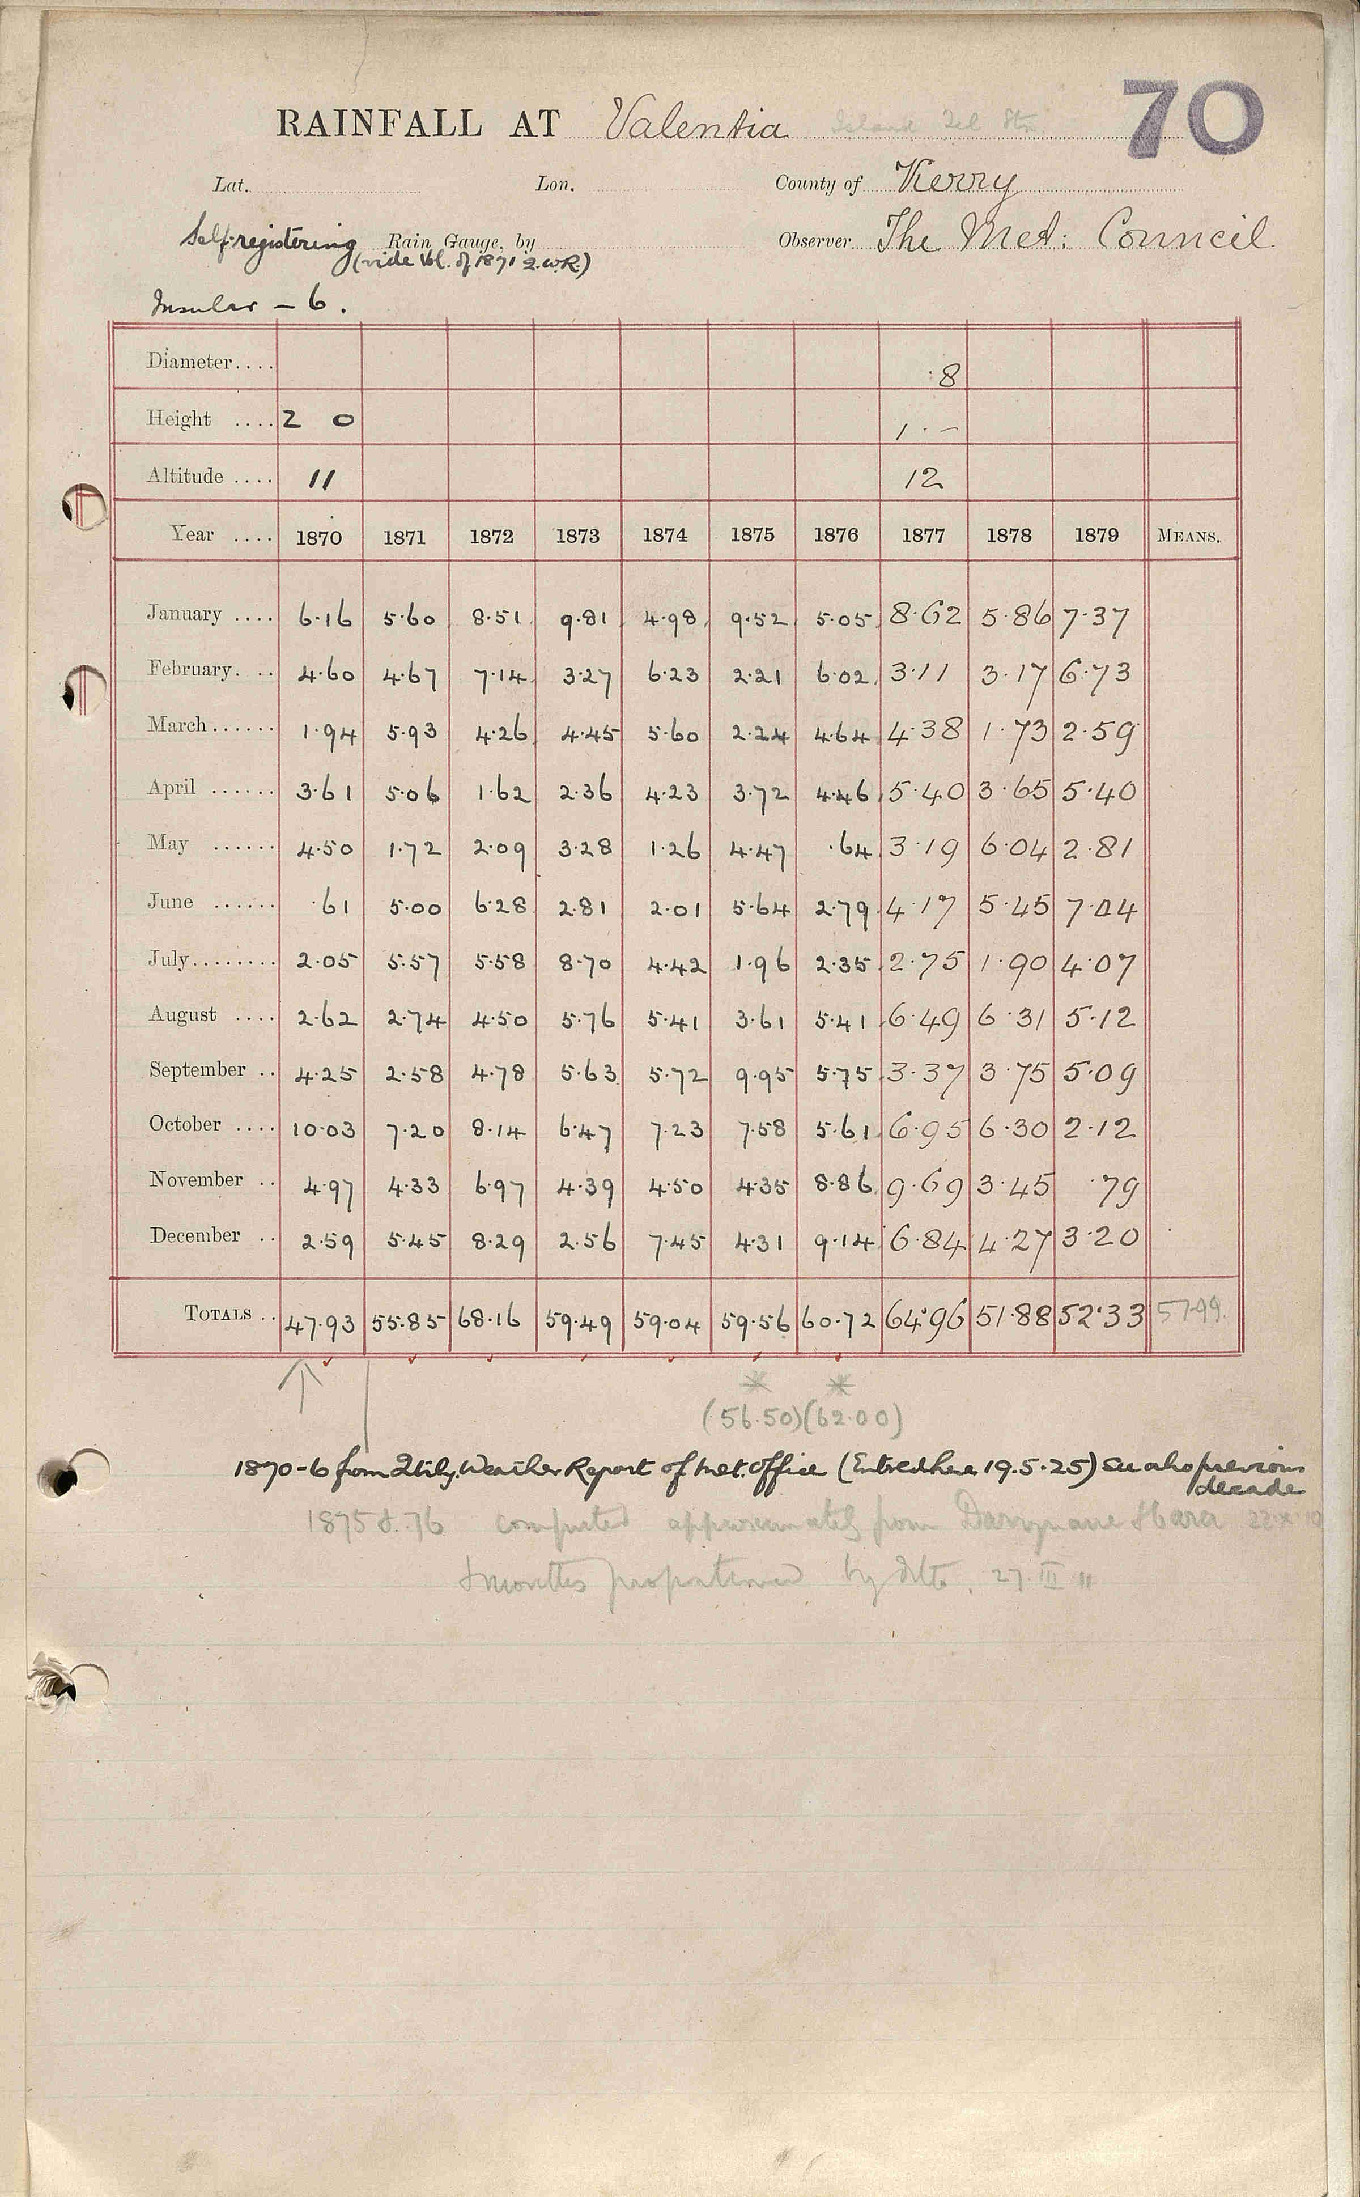 70
RAINFALL AT Valentia Island Tel Stn
Lat. Lon. County of Kerry
Self-registering Rain Gauge, by Observer The Met: Council
(vide Vol. of 1871 Q.W.R.)
Insular - 6.
Diameter.... ·8
Height .... 2 0 1 · -
Altitude .... 11 12
Year .... 1870 1871 1872 1873 1874 1875 1876 1877 1878 1879 MEANS.
January .... 6·16 5·60 8·51 9·81 4·98 9·52 5·05 8·62 5·86 7·37
February. .. 4·60 4·67 7·14 3·27 6·23 2·21 6·02 3·11 3·17 6·73
March ...... 1·94 5·93 4·26 4·45 5·60 2·24 4·64 4·38 1·73 2·59
April ...... 3·61 5·06 1·62 2·36 4·23 3·72 4·46 5·40 3·65 5·40
May ...... 4·50 1·72 2·09 3·28 1·26 4·47 ·64 3·19 6·04 2·81
June ...... ·61 5·00 6·28 2·81 2·01 5·64 2·79 4·17 5·45 7·04
July........ 2·05 5·57 5·58 8·70 4·42 1·96 2·35 2·75 1·90 4·07
August .... 2·62 2·74 4·50 5·76 5·41 3·61 5·41 6·49 6·31 5·12
September .. 4·25 2·58 4·78 5·63 5·72 9·95 5·75 3·37 3·75 5·09
October .... 10·03 7·20 8·14 6·47 7·23 7·58 5·61 6·95 6·30 2·12
November .. 4·97 4·33 6·97 4·39 4·50 4·35 8·86 9·69 3·45 ·79
December .. 2·59 5·45 8·29 2·56 7·45 4·31 9·14 6·84 4·27 3·20
TOTALS .. 47·93 55·85 68·16 59·49 59·04 59·56 60·72 64·96 51·88 52·33 57·99
* *
(56.50) (62.00)
1870-6 from Qtly. Weather Report of Met. Office (Entered here 19.5.25) See also previous
decade
1875 & 76 computed approximately from Darrynane
months proportioned by 27 III "